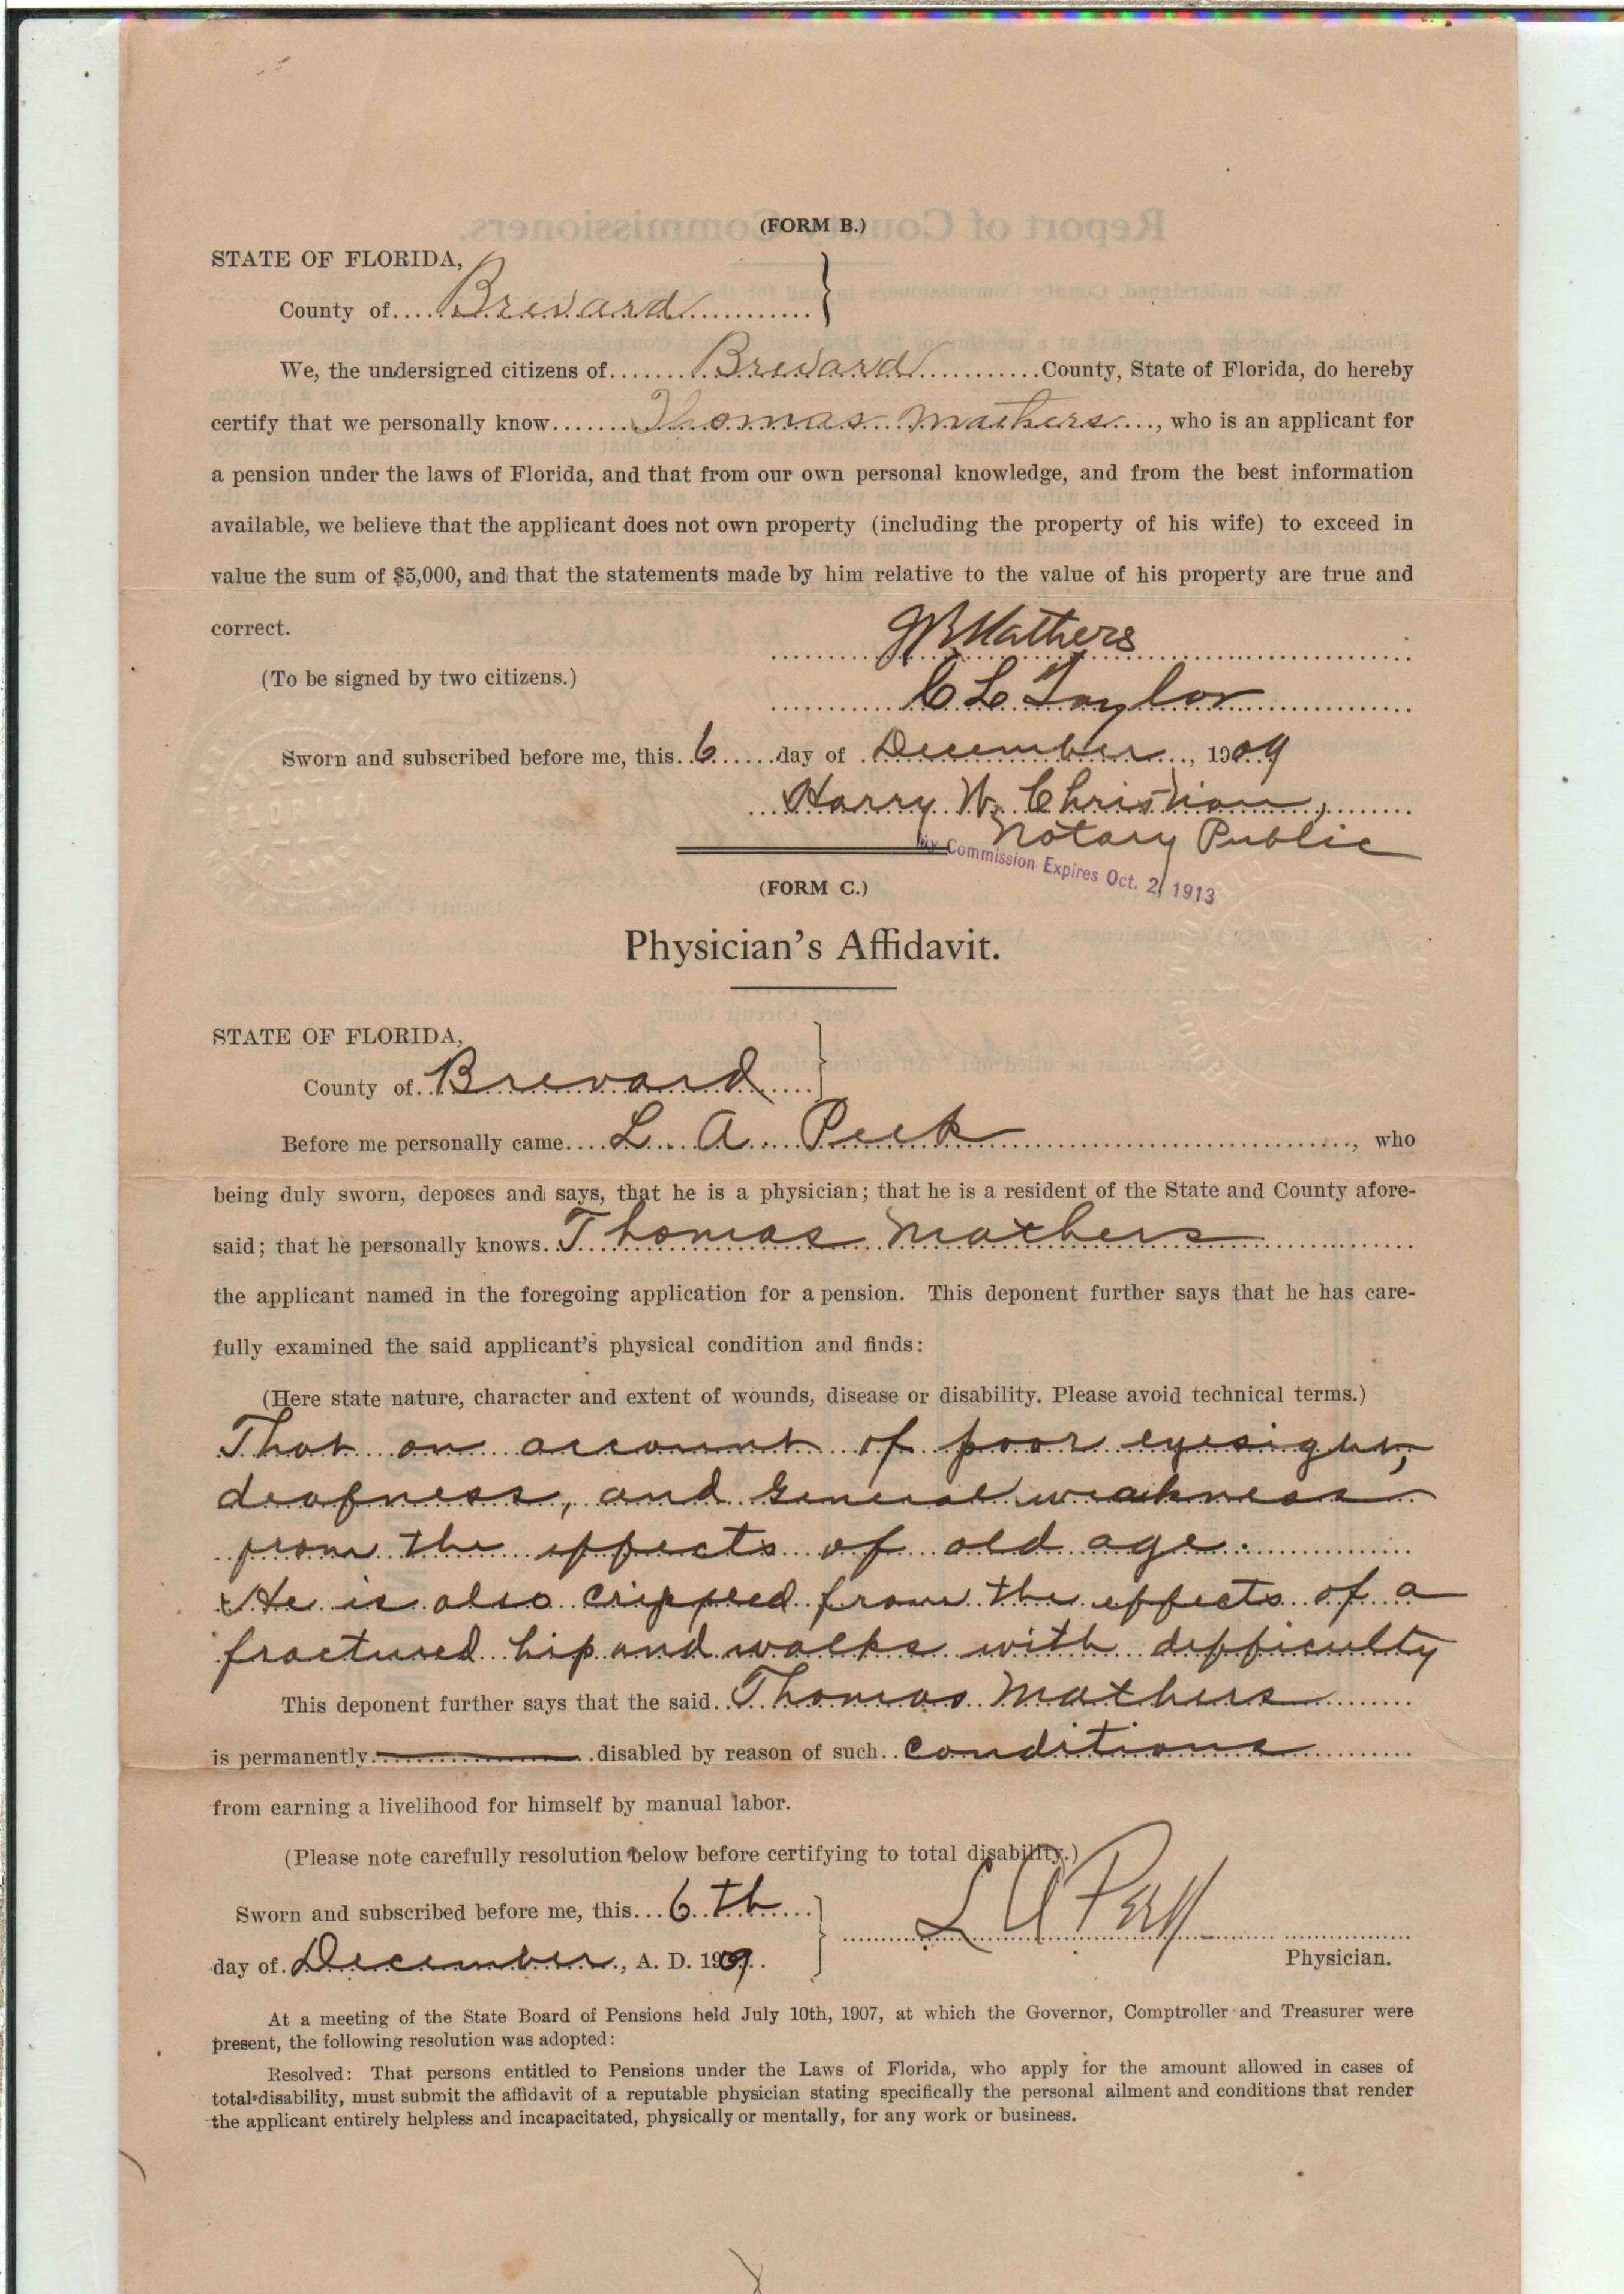 (FORM B.)
STATE OF FLORIDA,
County of Brevard
We, the undersigned citizens of Brevard County, State of Florida, do hereby
certify that we personally know Thomas Mathers, who is an applicant for
a pension under the laws of Florida, and that from our own personal knowledge, and from the best information
available, we believe that the applicant does not own property (including the property of his wife) to exceed in
value the sum of $5,000, and that the statements made by him relative to the value of his property are true and
correct.
JB Mathers
(To be signed by two citizens.)
C L Taylor
Sworn and subscribed before me, this 6 day of December, 1909
Harry W. Christian,
Notary Public
My Commission Expires Oct. 2, 1913
(FORM C.)
Physician's Affidavit.
STATE OF FLORIDA,
County of Brevard
Before me personally came L. A. Peek, who
being duly sworn, deposes and says, that he is a physician; that he is a resident of the State and County afore-
said; that he personally knows Thomas Mathers
the applicant named in the foregoing application for a pension. This deponent further says that he has care-
fully examined the said applicant's physical condition and finds:
(Here state nature, character and extent of wounds, disease or disability. Please avoid technical terms.)
That on account of poor eyesight,
deafness, and general weakness
from the effects of old age.
He is also crippled from the effects of a
fractured hip and walks with difficulty
This deponent further says that the said Thomas Mathers
is permanently disabled by reason of such conditions
from earning a livelihood for himself by manual labor.
(Please note carefully resolution below before certifying to total disability.)
Sworn and subscribed before me, this 6th
L A Peek
day of December, A. D. 1909.
Physician.
At a meeting of the State Board of Pensions held July 10th, 1907, at which the Governor, Comptroller and Treasurer were
present, the following resolution was adopted:
Resolved: That persons entitled to Pensions under the Laws of Florida, who apply for the amount allowed in cases of
total disability, must submit the affidavit of a reputable physician stating specifically the personal ailment and conditions that render
the applicant entirely helpless and incapacitated, physically or mentally, for any work or business.